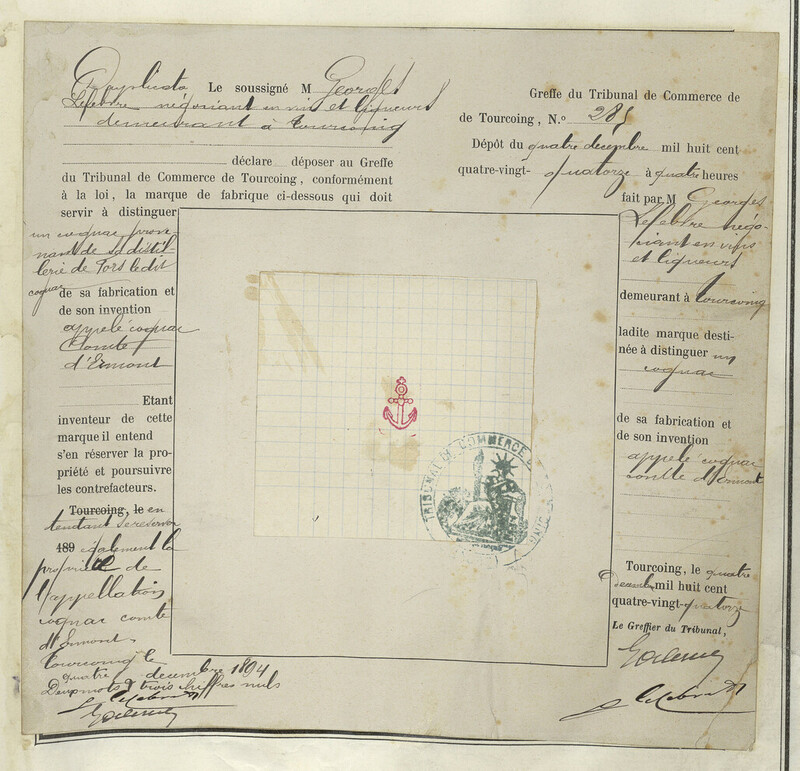 Duplicata Le soussigné M Georges
Lefebvre négociant en vins et liqueurs
demeurant à Tourcoing
déclare déposer au Greffe
du Tribunal de Commerce de Tourcoing, conformément
à la loi, la marque de fabrique ci-dessous qui doit
servir à distinguer
un cognac prove-
nant de sa distil-
lerie de
cognac
de sa fabrication et
de son invention
appelé cognac
Comte
d'Ermont
Etant
inventeur de cette
marque il entend
s'en réserver la pro-
priété et poursuivre
les contrefacteurs.
Tourcoing, le en
tendant se réserver
189 également la
propriété de
l'appellation
cognac comte
d'Ermont
Tourcoing le
quatre décembre 1894
Deux mots & trois chiffres nuls
Greffe du Tribunal de Commerce de
de Tourcoing, N.º 285
Dépôt du quatre décembre mil huit cent
quatre-vingt-quatorze à quatre heures
fait par M Georges
Lefebvre négo-
ciant en vins
et liqueurs
demeurant à Tourcoing
ladite marque desti-
née à distinguer un
cognac
de sa fabrication et
de son invention
appelé cognac
comte d'Ermont
Tourcoing, le quatre
Décembre mil huit cent
quatre-vingt-quatorze
Le Greffier du Tribunal,
TRIBUNAL DE COMMERCE